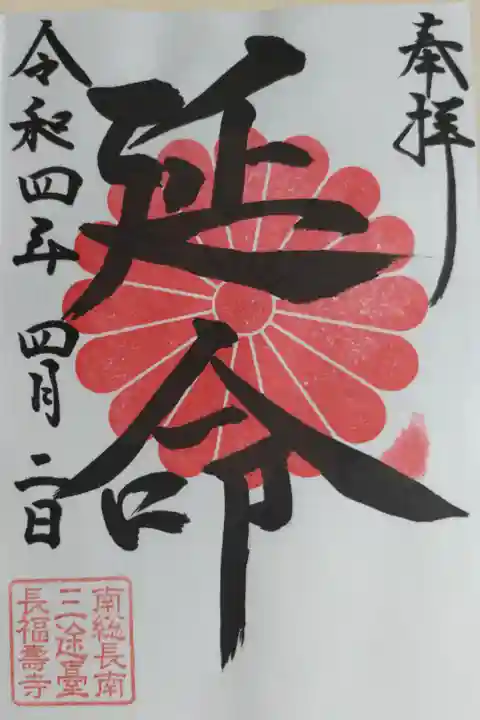 奉拝
延命
令和四年 四月 二日
南総長南
三途臺
長福壽寺